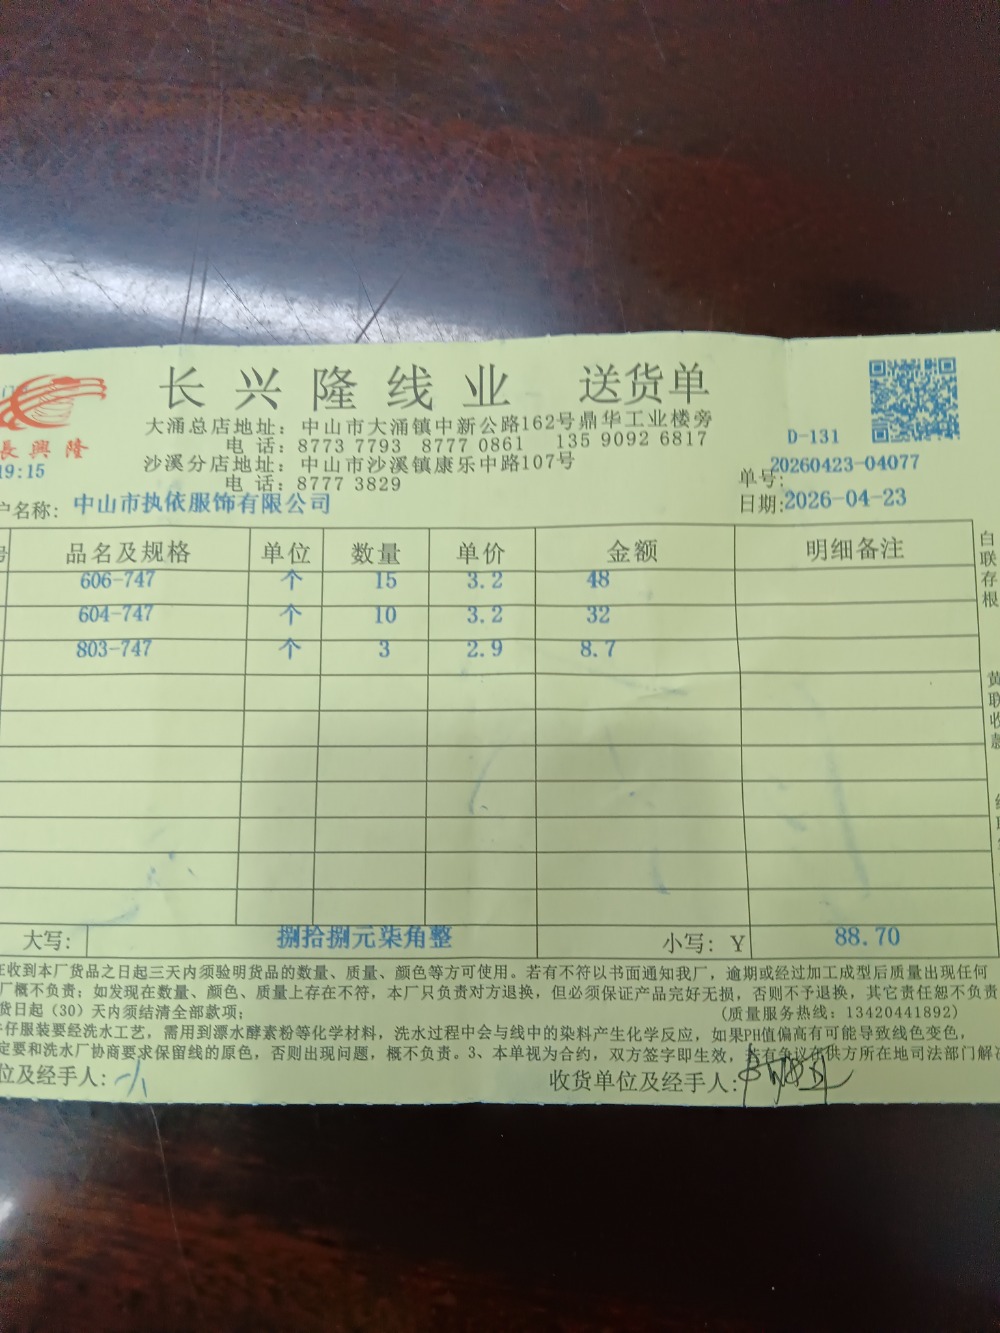 长兴隆线业 送货单
長興隆
大涌总店地址：中山市大涌镇中新公路162号鼎华工业楼旁
电 话：8773 7793 8777 0861 135 9092 6817
沙溪分店地址：中山市沙溪镇康乐中路107号
电 话：8777 3829
D-131
19:15
单号：20260423-04077
户名称：中山市执依服饰有限公司
日期：2026-04-23
号 品名及规格 单位 数量 单价 金额 明细备注
606-747 个 15 3.2 48
604-747 个 10 3.2 32
803-747 个 3 2.9 8.7
大写： 捌拾捌元柒角整 小写：Y 88.70
在收到本厂货品之日起三天内须验明货品的数量、质量、颜色等方可使用。若有不符以书面通知我厂，逾期或经过加工成型后质量出现任何
厂概不负责；如发现在数量、颜色、质量上存在不符，本厂只负责对方退换，但必须保证产品完好无损，否则不予退换，其它责任恕不负责
货日起（30）天内须结清全部款项； （质量服务热线：13420441892）
牛仔服装要经洗水工艺，需用到漂水酵素粉等化学材料，洗水过程中会与线中的染料产生化学反应，如果PH值偏高有可能导致线色变色，
定要和洗水厂协商要求保留线的原色，否则出现问题，概不负责。3、本单视为合约，双方签字即生效，若有争议在供方所在地司法部门解决
位及经手人： 收货单位及经手人：
白联存根
黄联收款